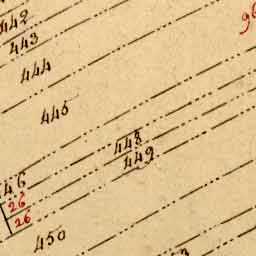 442
443
444
445
96
448
449
46
26
26
450
3